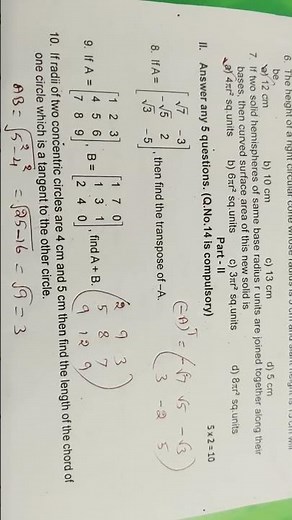 6. The height of a right circular cone whose radius is 5 cm and slant height is 13 cm will
be?
a) 12 cm b) 10 cm c) 13 cm d) 5 cm
7. If two solid hemispheres of same base radius r units are joined together along their
bases, then curved surface area of this new solid is
a) 4πr² sq.units b) 6πr² sq.units c) 3πr² sq.units d) 8πr² sq.units
Part - II
II. Answer any 5 questions. (Q.No.14 is compulsory) 5 x 2 = 10
8. If A = [√7 -3
-√5 2
√3 -5], then find the transpose of -A.
(-A)ᵀ = (-√7 √5 -√3
3 -2 5)
9. If A = [1 2 3
4 5 6
7 8 9], B = [1 7 0
1 3 1
2 4 0], find A + B.
(2 9 3
5 8 7
9 12 9)
10. If radii of two concentric circles are 4 cm and 5 cm then find the length of the chord of
one circle which is a tangent to the other circle.
AB = √5²-4² = √25-16 = √9 = 3